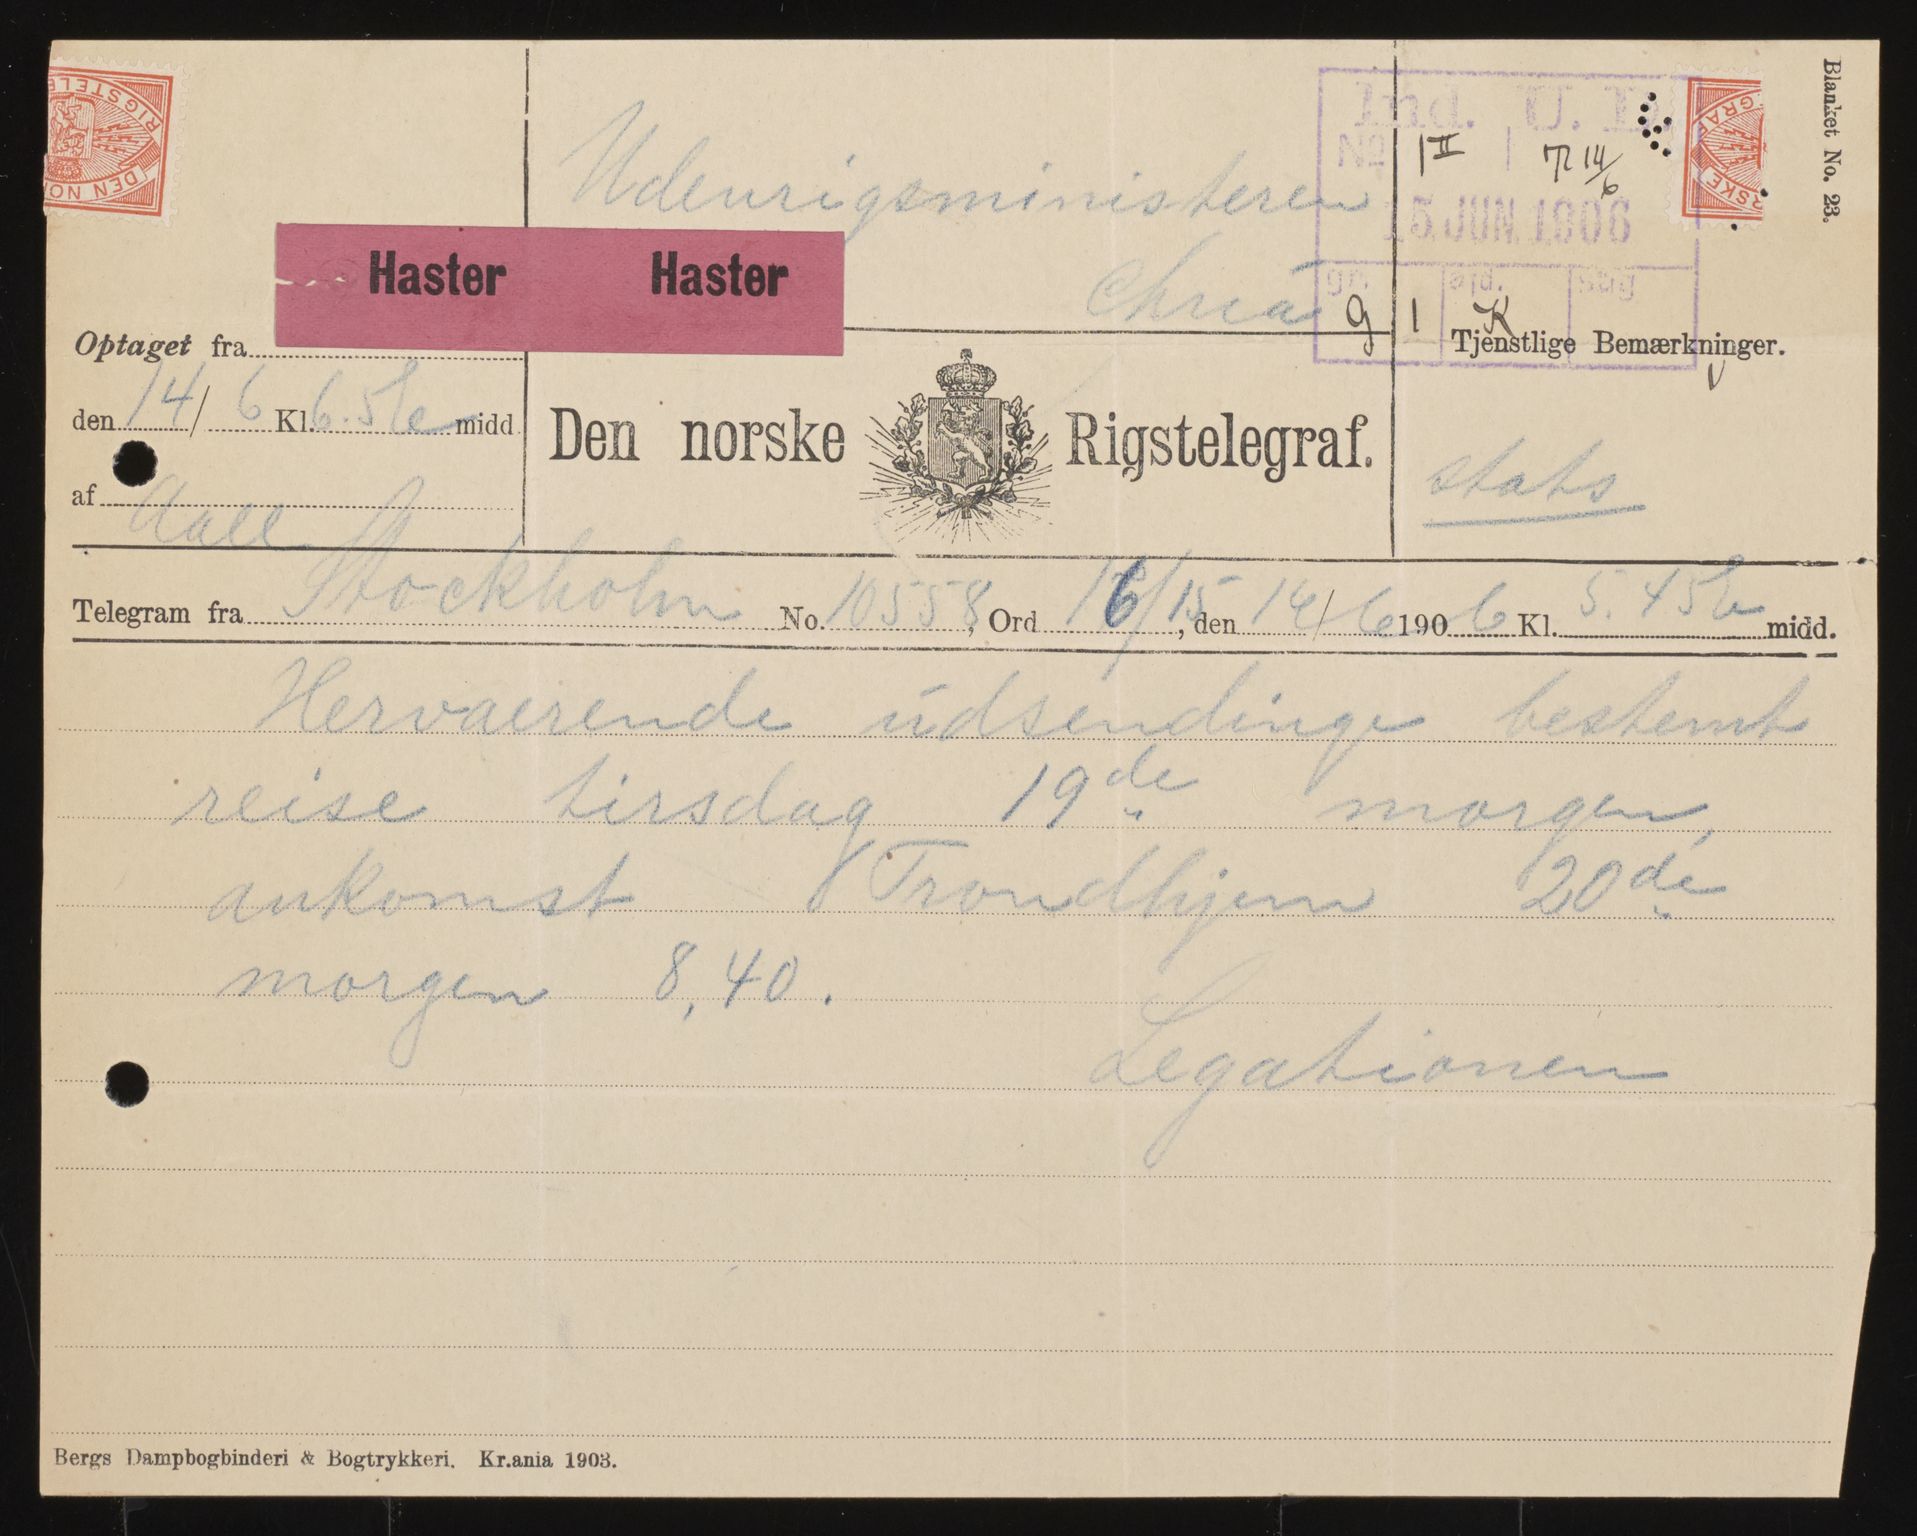 Blanket No. 23.
DEN NO
RIGSTELE
Ind. U. D.
No 1 II
R 14/6
15 JUN. 1906
gr. ajd. sag
g 1 K
Udenrigsministeren
Chria
Haster Haster
Optaget fra
den 14/6 Kl. 6.5 e midd
af Aall
Den norske Rigstelegraf.
Tjenstlige Bemærkninger.
stats
Telegram fra Stockholm No. 10558, Ord 16/15, den 14/6 1906 Kl. 5.45 e midd.
Hervaerende udsendinge bestemt
reise tirsdag 19de morgen,
ankomst Trondhjem 20de
morgen 8,40.
Legationen
Bergs Dampbogbinderi & Bogtrykkeri. Kr.ania 1903.